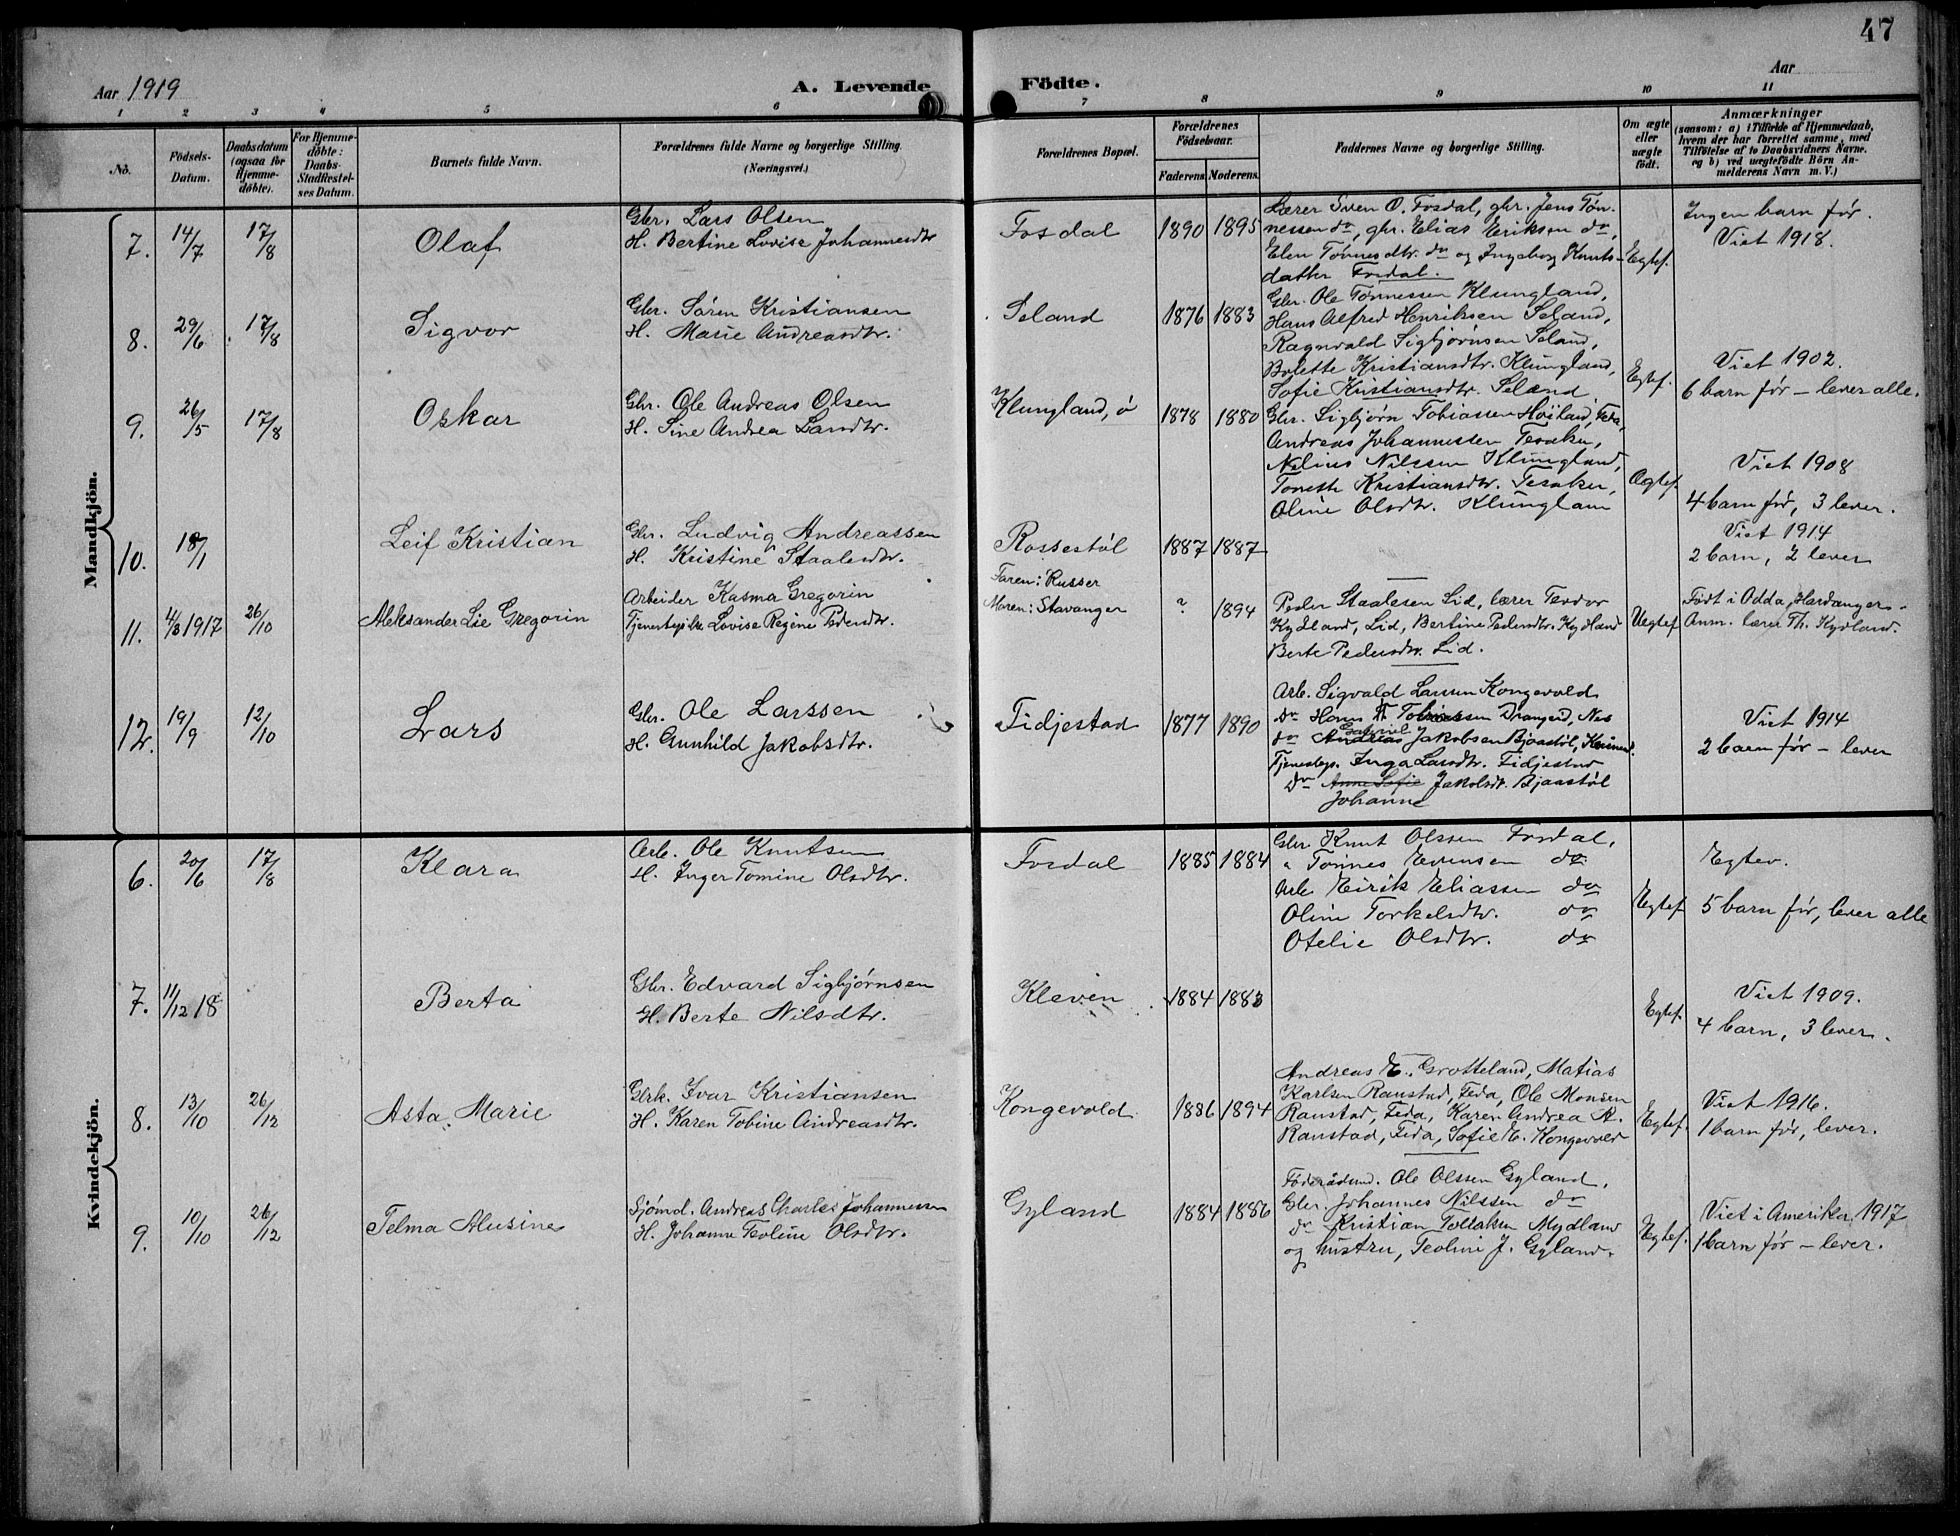 47
Aar 1919
A. Levende Födte.
Aar
1 2 3 4 5 6 7 8 9 10 11
No.
Födsels-Datum.
Daabsdatum (ogsaa for Hjemme-döbte).
For Hjemme-döbte: Daabs-Stadfæstel-ses Datum.
Barnets fulde Navn.
Forældrenes fulde Navne og borgerlige Stilling. (Næringsvei.)
Forældrenes Bopæl.
Forældrenes Födselsaar.
Faderens. Moderens.
Faddernes Navne og borgerlige Stilling.
Om ægte eller uægte födt.
Anmærkninger
(saasom: a) i Tilfælde af Hjemmedaab, hvem der har forrettet samme, med Tilföielse af to Daabsvidners Navne. og b) ved uægtefödte Börn An-melderens Navn m. V.)
Mandkjön.
7. 14/7 17/8 Olaf
Gbr. Lars Olsen
H. Bertine Lovise Johannesdtr
Fosdal 1890 1895
Lærer Sven O. Fosdal, gbr. Jens Tøn-
nessen do, gbr. Elias Eriksen do,
Elen Tønnesdtr. do og Ingeborg Knuts-
datter Fosdal.
Egtef.
Ingen barn før.
Viet 1918.
8. 29/6 17/8 Sigvor
Gbr. Søren Kristiansen
H. Marie Andreasdtr.
Seland 1876 1883
Gbr. Ole Tønnessen Klungland,
Hans Alfred Henriksen Seland,
Ragnvald Sigbjørnsen Seland,
Bolette Kristiansdtr. Klungland,
Sofie Kristiansdtr. Seland
Egtef.
Viet 1902.
6 barn før – lever alle.
9. 26/5 17/8 Oskar
Gbr. Ole Andreas Olsen
H. Sine Andrea Larsdtr.
Klungland, ø 1878 1880
Gbr. Sigbjørn Tobiassen Høiland, Feda,
Andreas Johannessen Tesaker,
Nilius Nilssen Klungland,
Tonette Kristiansdtr. Tesaker,
Oline Olsdtr. Klunglan
Ægtef.
Viet 1908
4 barn før, 3 lever.
10. 18/1 Leif Kristian
Gbr. Ludvig Andreassen
H. Kristine Staalesdtr.
Rossestøl 1887 1887
Viet 1914
2 barn, 2 lever
11. 4/3 1917 26/10 Aleksander Lie Gregorin
Arbeider Kasma Gregorin
Tjenestepike Lovise Regine Pedersdtr.
Faren: Russer
Moren: Stavanger ? 1894
Peder Staalesen Lid, lærer Teodor
Kydland, Lid, Bertine Pedersdtr. Kydland
Berte Pedersdtr. Lid.
Uegtef
Født i Odda, Hardanger.
Anm. lærer Th. Kydland.
12. 19/9 12/10 Lars
Gbr. Ole Larssen
H. Gunhild Jakobsdtr.
Fidjestad 1877 1890
Arb. Sigvald Larsen Kongevold
do Hans T. Tobiassen Drangeid, Nes
Gabriel
do Andreas Jakobsen Bjaastøl,
Tjenestep. Inga Larsdtr. Fidjestad
do Anne Sofie Jakobsdt. Bjaastøl
Johanne
Viet 1914
2 barn før – lever
Kvindekjön.
6. 20/6 17/8 Klara
Arb. Ole Knutsen
H. Inger Tomine Olsdtr.
Fosdal 1885 1884
Gbr. Knut Olssen Fosdal,
" Tønnes Evensen do
Arb. Eirik Eliassen do
Oline Torkelsdtr. do
Otelie Olsdtr. do
Egtef
Egtev.
5 barn før, lever alle
7. 11/12 18 Berta
Gbr. Edvard Sigbjørnsen
H. Berte Nilsdtr.
Kleven 1884 1883
Egtef.
Viet 1909.
4 barn, 3 lever.
8. 13/10 26/12 Asta Marie
Gbrk. Ivar Kristiansen
H. Karen Tobine Andreasdtr.
Kongevold 1886 1894
Andreas E. Grotteland, Matias
Karlsen Ranstad, Feda, Ole Monsen
Ranstad, Feda, Karen Andrea A.
Ranstad, Feda, Sofie E. Kongevold
Egtef.
Viet 1916.
1 barn før, lever.
9. 10/10 26/12 Telma Alusine
Sjømd. Andreas Charles Johannessen
H. Johanne Teoline Olsdtr.
Gyland 1884 1886
Føderådsmd. Ole Olssen Gyland,
Gbr. Johannes Nilssen do
do Kristian Tollaksen Mydland
og hustru, Teoline J. Gyland.
Egtef.
Viet i Amerika 1917
1 barn før – lever.